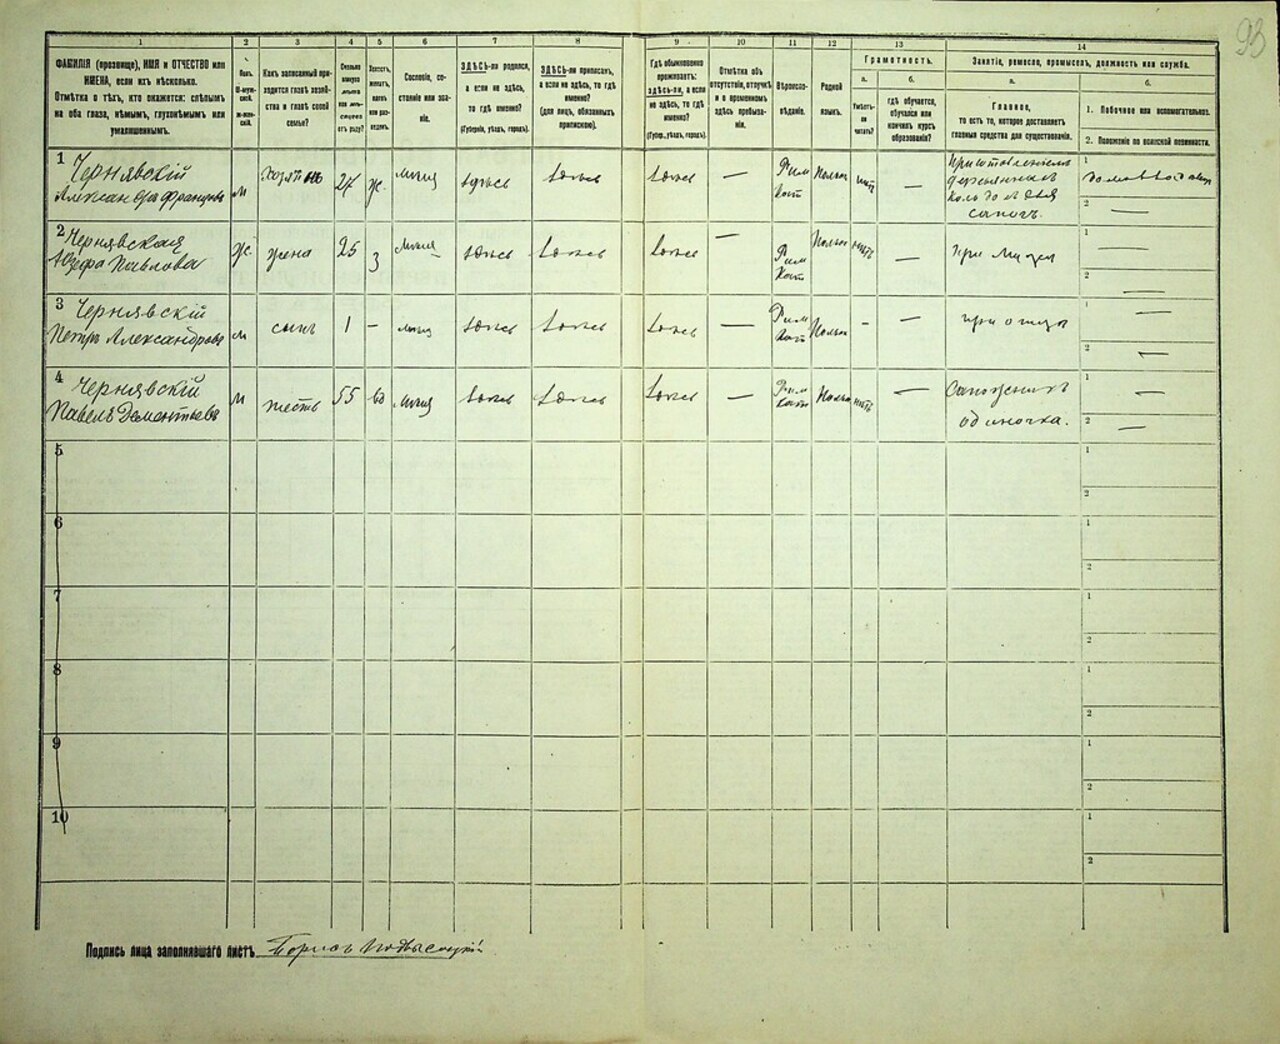 93
1
2
3
4
5
6
7
8
9
10
11
12
13
14
ФАМИЛІЯ (прозвище), ИМЯ и ОТЧЕСТВО или
ИМЕНА, если ихъ нѣсколько.
Отмѣтка о тѣхъ, кто окажется: слѣпымъ
на оба глаза, нѣмымъ, глухонѣмымъ или
умалишеннымъ.
Полъ.
М-муж-
ской.
Ж-жен-
скій.
Какъ записанный при-
ходится главѣ хозяй-
ства и главѣ своей
семьи?
Сколько
минуло
лѣтъ
или мѣ-
сяцевъ
отъ роду?
Холостъ,
женатъ,
вдовъ
или раз-
веденъ.
Сословіе, со-
стояніе или зва-
ніе.
ЗДѢСЬ-ли родился,
а если не здѣсь,
то гдѣ именно?
(Губернія, уѣздъ, городъ).
ЗДѢСЬ-ли приписанъ,
а если не здѣсь, то гдѣ
именно?
(для лицъ, обязанныхъ
припискою).
Гдѣ обыкновенно
проживаетъ:
здѣсь-ли, а если
не здѣсь, то гдѣ
именно?
(Губер., уѣздъ, городъ).
Отмѣтка объ
отсутствіи, отлучкѣ
и о временномъ
здѣсь пребыва-
ніи.
Вѣроиспо-
вѣданіе.
Родной
языкъ.
Грамотность.
а.
б.
Умѣетъ-
ли
читать?
гдѣ обучается,
обучался или
кончилъ курсъ
образованія?
Занятіе, ремесло, промыселъ, должность или служба.
а.
б.
Главное,
то есть то, которое доставляетъ
главныя средства для существованія.
1. Побочное или вспомогательное.
2. Положеніе по воинской повинности.
1 Чернявскій
Александръ Францовъ
М
хозяинъ
27
ж.
здѣсь
здѣсь
здѣсь
—
Рим
Кат
Польск
нѣтъ
—
сапогъ.
1
2 —
2 Чернявская
Юзефа Павлова
Ж.
жена
25
З
здѣсь
здѣсь
здѣсь
—
Рим
Кат
Польск
нѣтъ
—
при мужѣ
1 —
2 —
3 Чернявскій
Петръ Александровъ
М
сынъ
1
—
здѣсь
здѣсь
здѣсь
—
Рим
Кат
Польск
-
—
при отцѣ
1 —
2 —
4 Чернявскій
Павелъ Дементьевъ
М
тесть
55
вд
здѣсь
здѣсь
здѣсь
—
Рим
Кат
Польск
нѣтъ
—
Сапожникъ
одиночка.
1 —
2 —
5
1
2
6
1
2
7
1
2
8
1
2
9
1
2
10
1
2
Подпись лица заполнявшаго листъ Борисъ